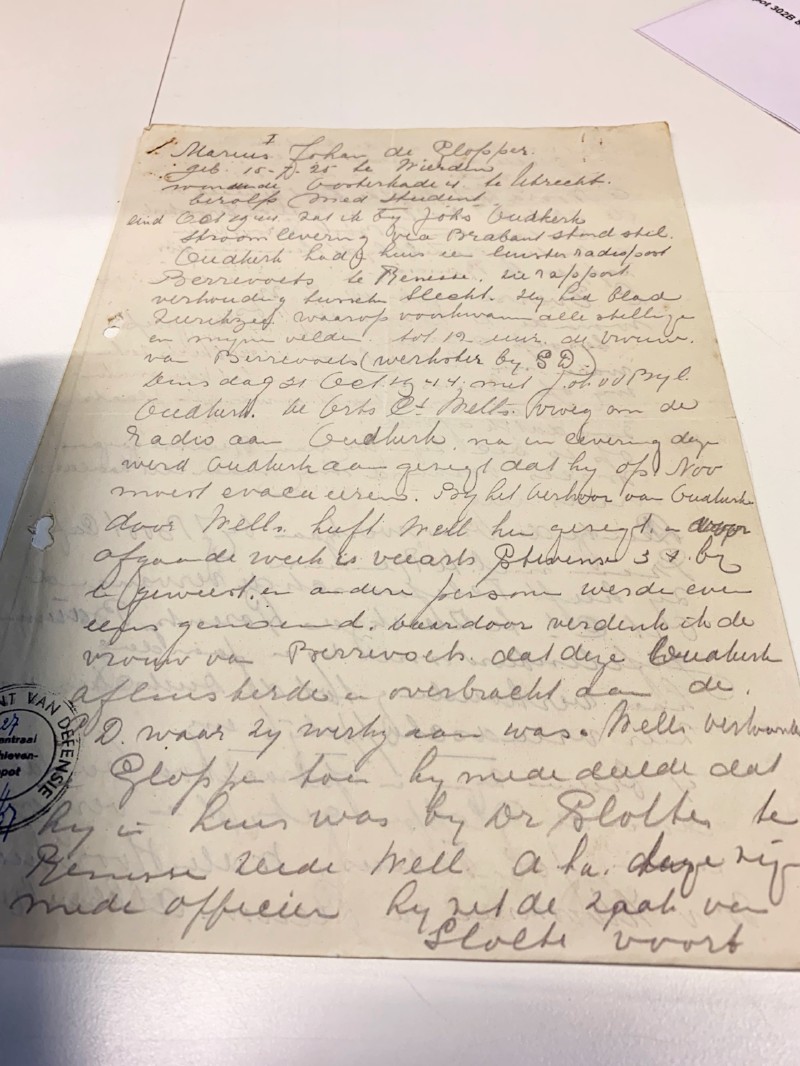 pot 302B
I
1. Marius Johan de Glopper.
geb. 15-7-25 te Wierden
wonende Oosterkade 4. te Utrecht.
beroep Med student.
eind Oct 1944. zat ik by Johs Oudkerk
stroomlevering via Brabant stond stil.
Oudkerk had in huis een luister radiopost
Berrevoets te Renesse. zie rapport
verhouding tusschen slecht. Hy had blad
Zierikzee waarop voorkwamen alle stellinge
en mynen velden. tot 12 uur. de vrouw.
van Berrevoets (werkster by S D.)
Dinsdag 31 Oct 1944. met Joh. vd Byl.
Oudkerk. de Orts Ct Wells. vroeg om de
Radio aan Oudkerk, na inlevering deze
werd Oudkerk aan gezegt dat hy op Nov
moest evacueeren. By het verhoor van Oudkerk
door Wells. heeft Well hen gezegt.
afgaande week is veearts Stevens 3 x. by
U geweest, en andere persoon werde even
eens genoemd. waardoor verdenk ik de
vrouw van Berrevoets. dat deze Oudkerk
afluisterde en overbracht aan de.
S.D. waar zy werkzaam was. Wells
Glopper toen hy mededeelde dat
hy in huis was by Dr Slotte te
Renesse zeide Well. A ha. deze zyn
mede officier hy zette zaak van
Slotte voort
NT VAN DEFENSIE
27
entraal
hieven-
pot